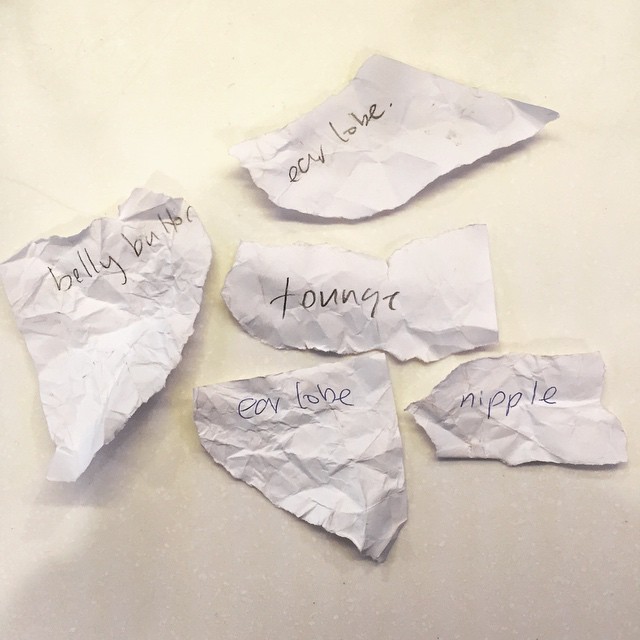 ear lobe.
belly button
tounge
ear lobe
nipple